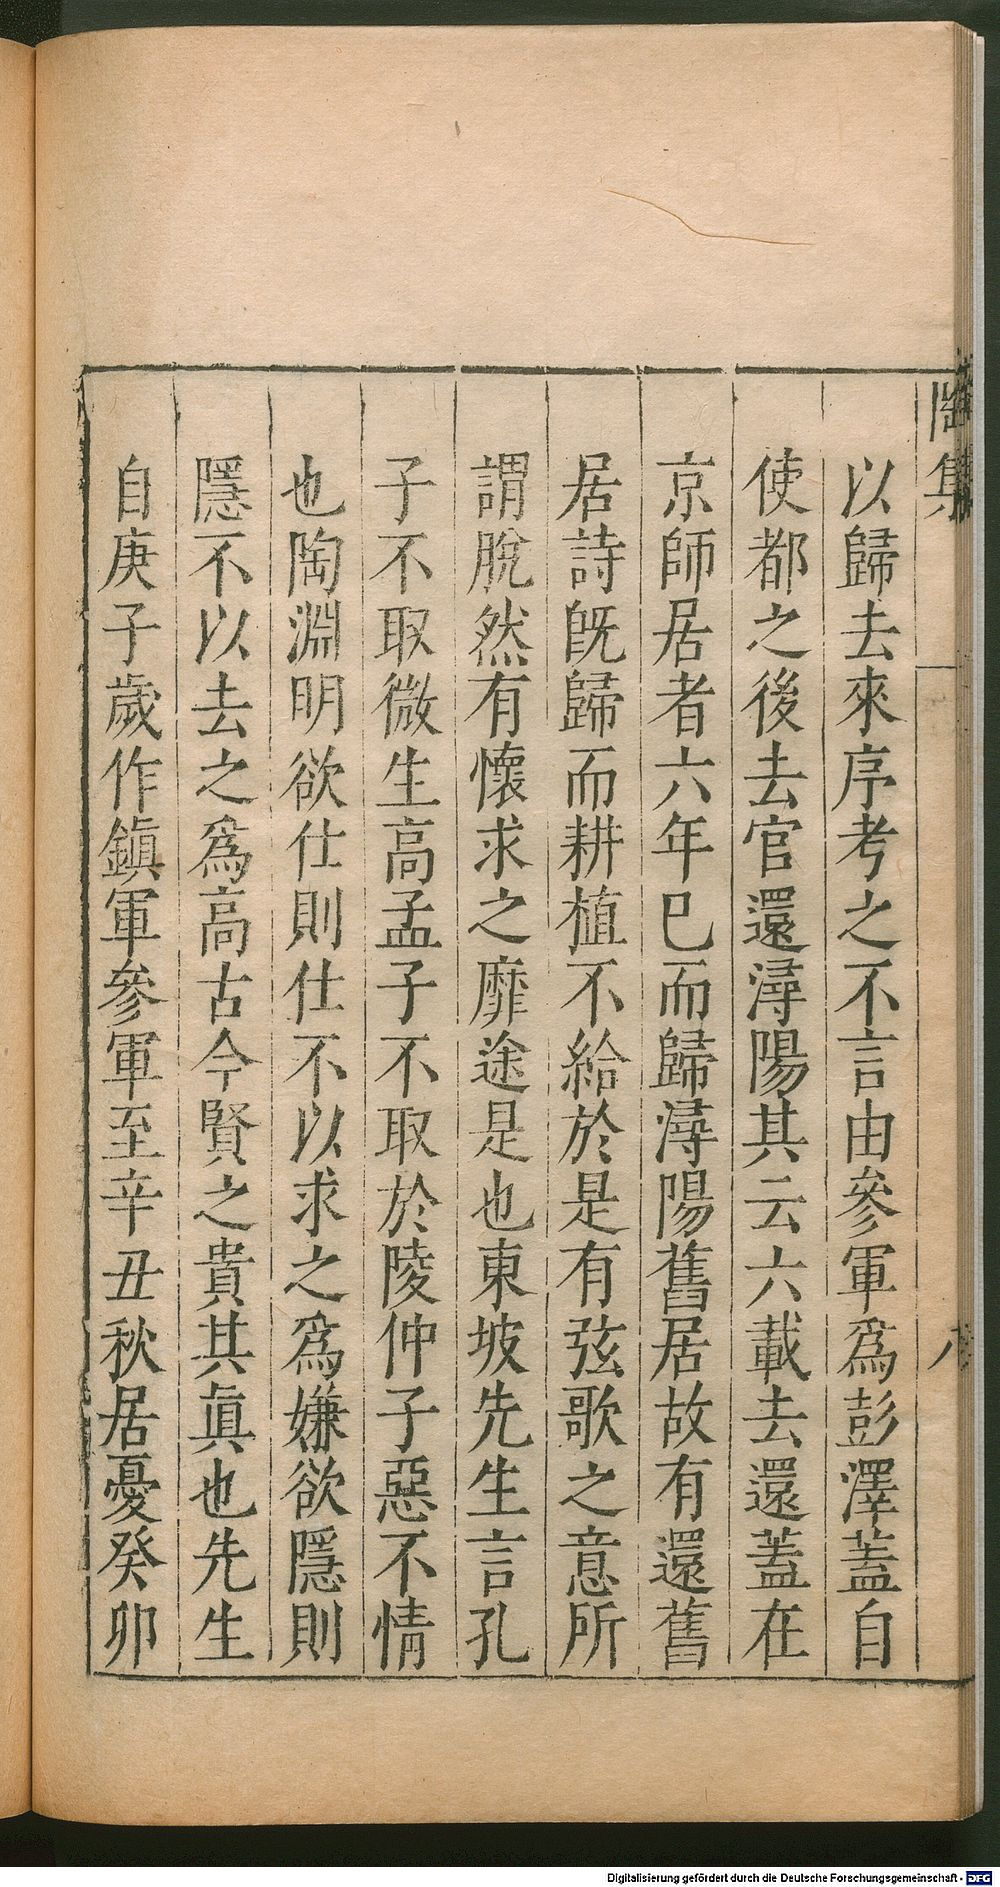 陶集
八
以歸去來序考之不言由參軍爲彭澤蓋自
使都之後去官還潯陽其云六載去還蓋在
京師居者六年已而歸潯陽舊居故有還舊
居詩旣歸而耕植不給於是有弦歌之意所
謂脫然有懷求之靡途是也東坡先生言孔
子不取微生高孟子不取於陵仲子惡不情
也陶淵明欲仕則仕不以求之爲嫌欲隱則
隱不以去之爲高古今賢之貴其眞也先生
自庚子歲作鎭軍參軍至辛丑秋居憂癸卯
Digitalisierung gefördert durch die Deutsche Forschungsgemeinschaft - DFG